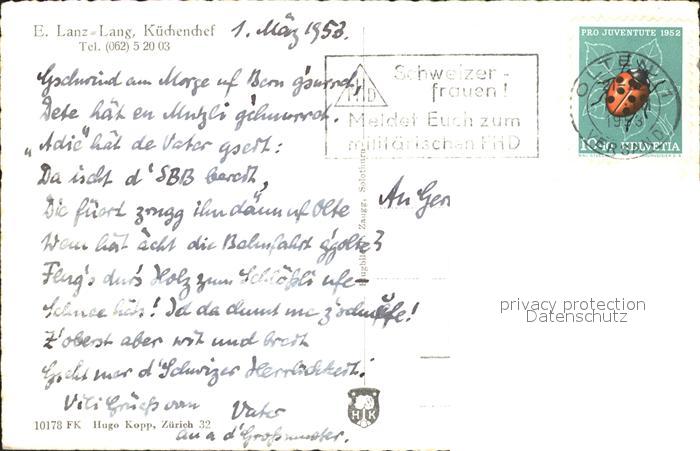 E. Lanz-Lang, Küchenchef
Tel. (062) 5 20 03
1. März 1953.
PRO JUVENTUTE 1952
HELVETIA
OLTEN 1
VERSAND
Schweizer-
frauen!
Meldet Euch zum
militärischen FHD
FHD
Gschwind am Morge uf Bern g'surret,
Dete hät en Mutzli g'chnurret.
"Adie" hät de Vater gseit:
Da ischt d'SBB bereit,
Die füert zrugg ihn dänn uf Olte
Wem hät ächt die Bahnfahrt g'golte?
Flug's dur's Holz zum Schlößli ufe–
Schnee häts! Id da chunt me z'schnufe!
Z'oberst aber wit und breit
Gseht mer d'Schwizer Herrlichkeit.
Vili Grüeß vom Vater
au a d'Großmuetter.
An
Zaugg, Solothurn
HK
10178 FK Hugo Kopp, Zürich 32
privacy protection
Datenschutz